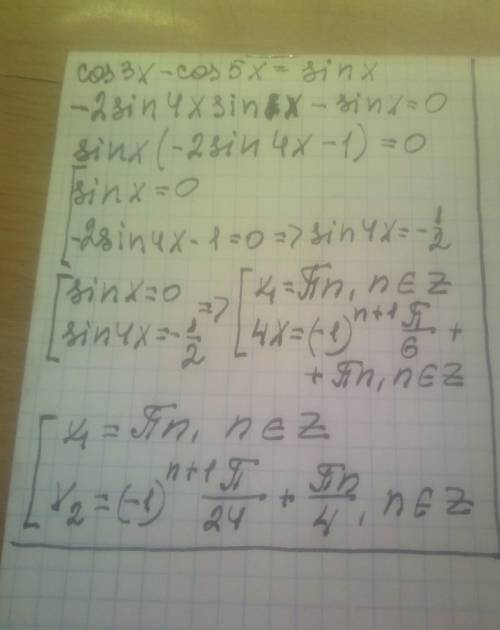 cos3x - cos5x = sinx
-2sin4x sinx - sinx = 0
sinx(-2sin4x - 1) = 0
[sinx = 0
-2sin4x - 1 = 0 => sin4x = -1/2
[sinx = 0 => [x₁ = πn, n ∈ Z
sin4x = -1/2 4x = (-1)ⁿ⁺¹ π/6 +
+ πn, n ∈ Z
[x₁ = πn, n ∈ Z
x₂ = (-1)ⁿ⁺¹ π/24 + πn/4, n ∈ Z